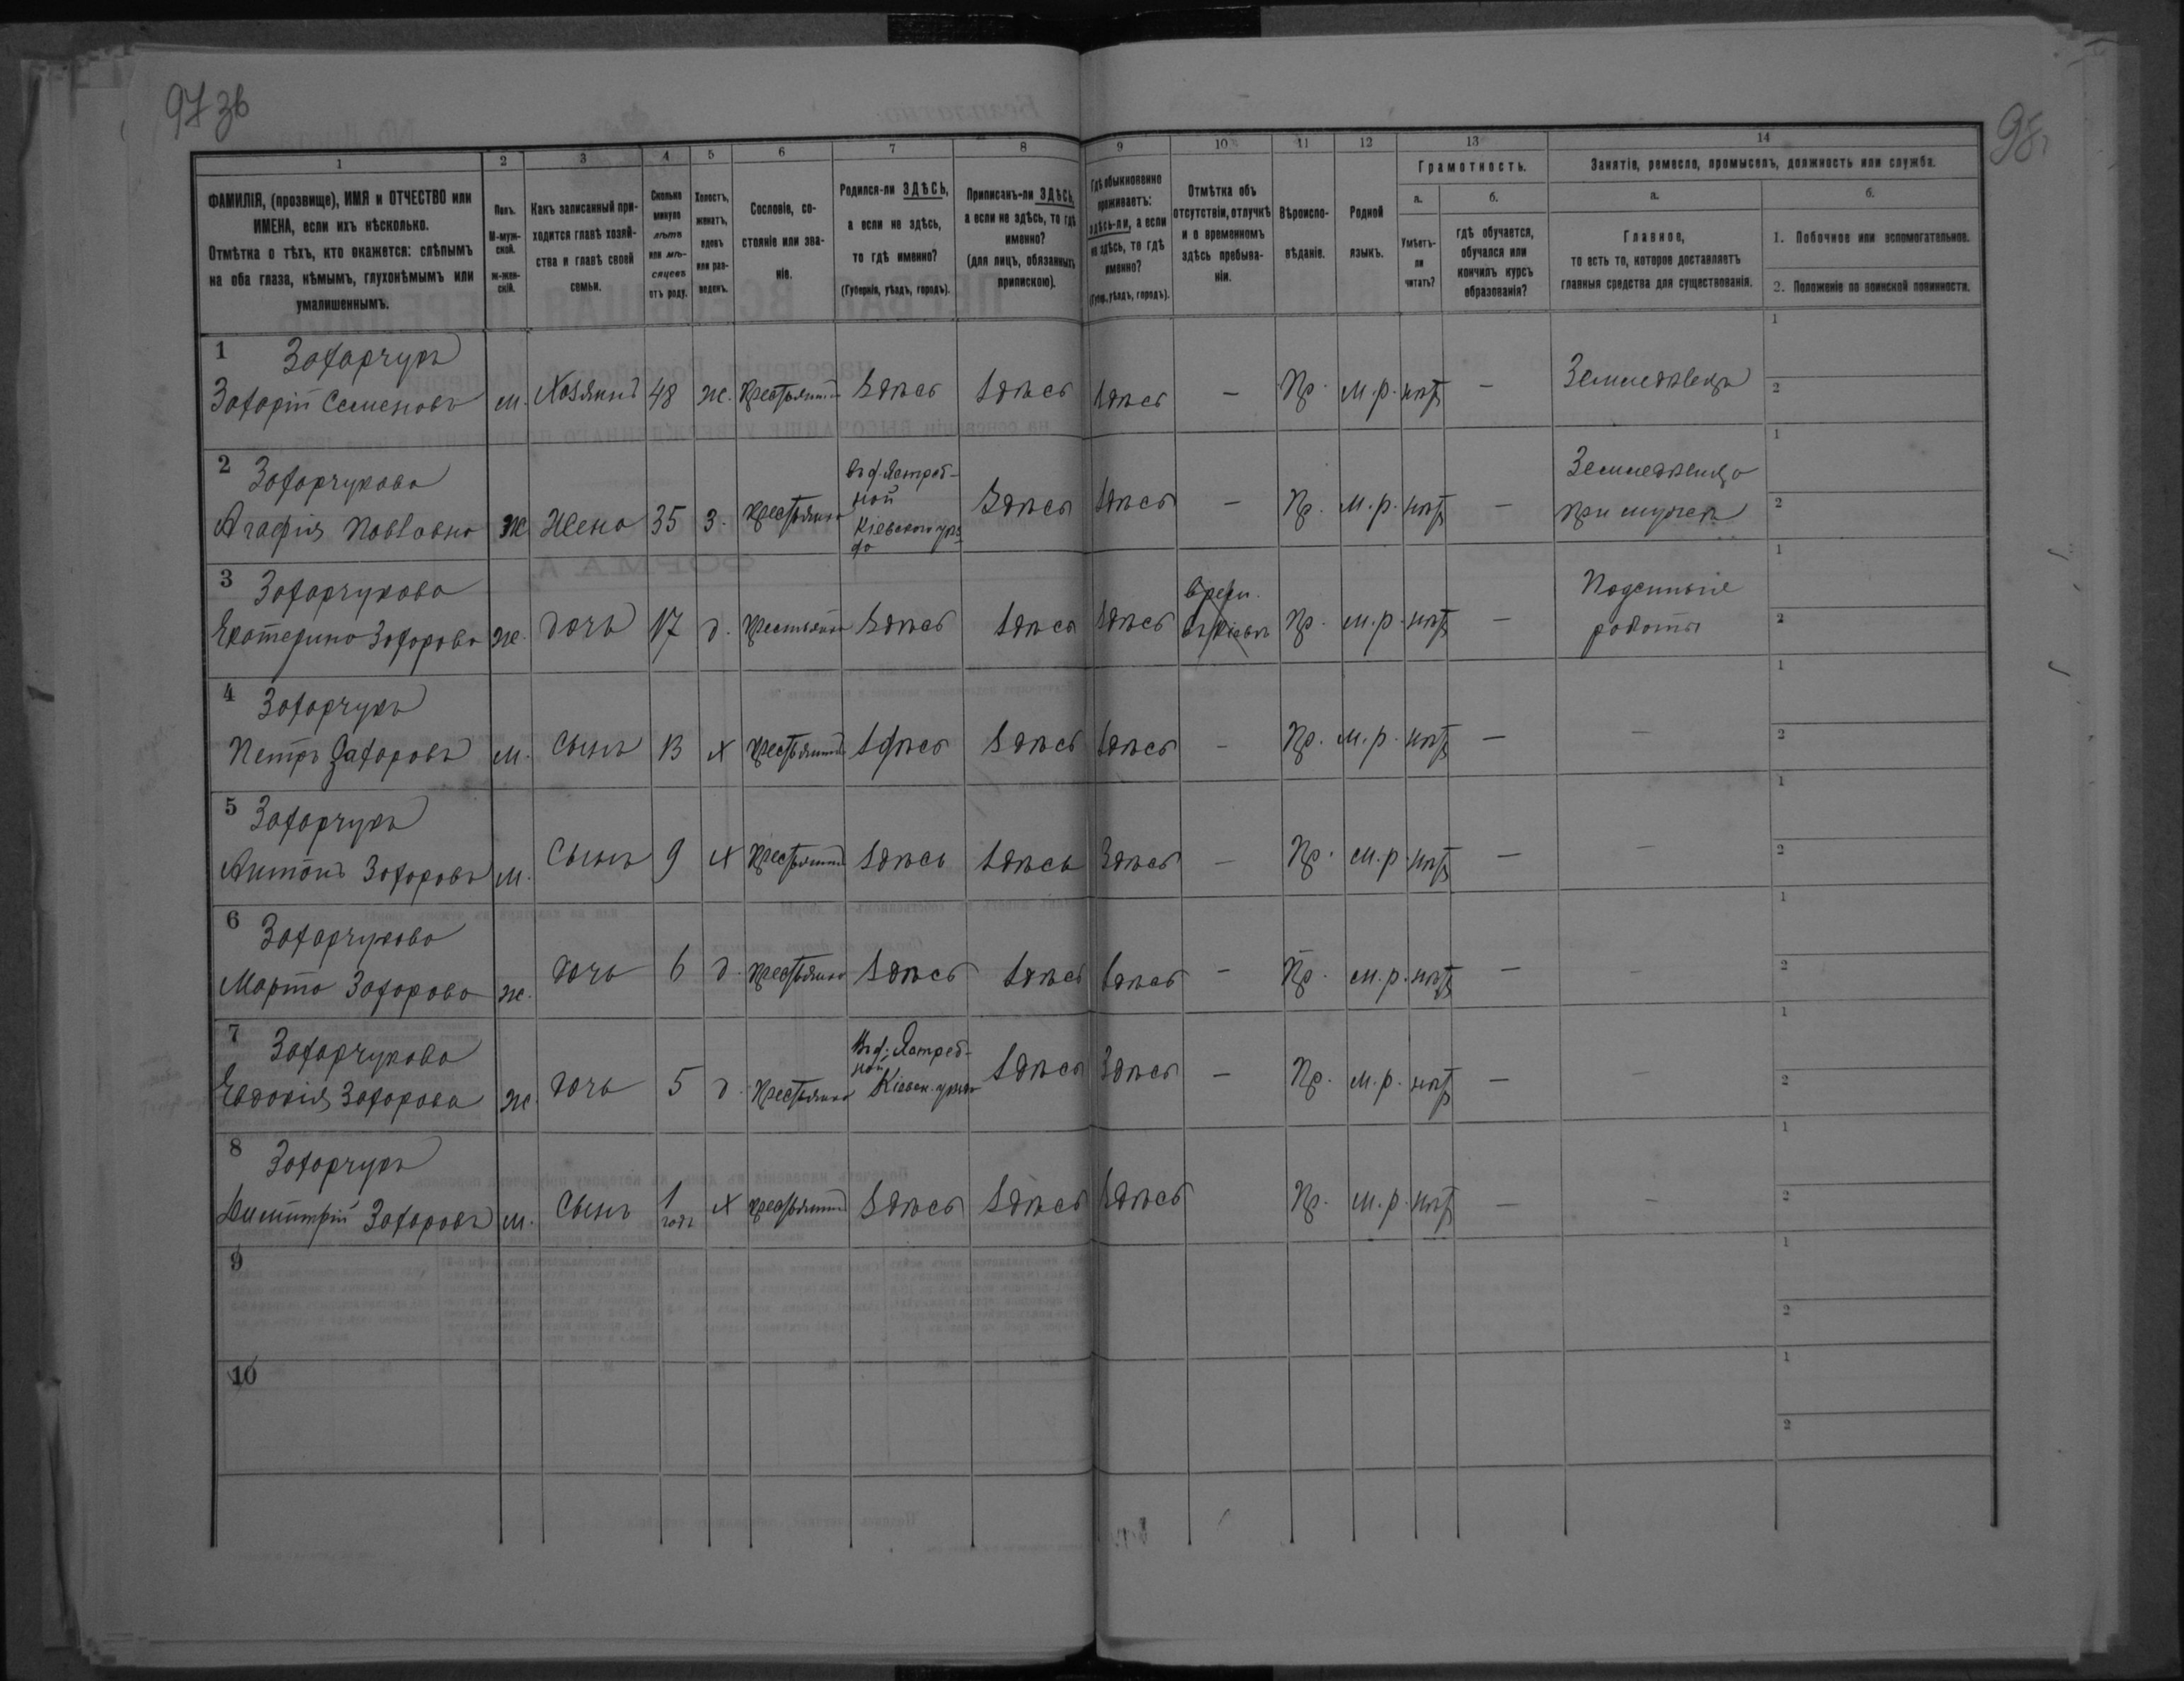 97 зв
98
1 2 3 4 5 6 7 8 9 10 11 12 13 14
ФАМИЛІЯ, (прозвище), ИМЯ и ОТЧЕСТВО или
ИМЕНА, если ихъ нѣсколько.
Отмѣтка о тѣхъ, кто окажется: слѣпымъ
на оба глаза, нѣмымъ, глухонѣмымъ или
умалишеннымъ.
Полъ.
М-муж-
ской.
Ж-жен-
скій.
Какъ записанный при-
ходится главѣ хозяй-
ства и главѣ своей
семьи.
Сколько
минуло
лѣтъ
или мѣ-
сяцевъ
отъ роду.
Холостъ,
женатъ,
вдовъ
или раз-
веденъ.
Сословіе, со-
стояніе или зва-
ніе.
Родился-ли ЗДѢСЬ,
а если не здѣсь,
то гдѣ именно?
(Губернія, уѣздъ, городъ).
Приписанъ-ли ЗДѢСЬ,
а если не здѣсь, то гдѣ
именно?
(для лицъ, обязанныхъ
припискою).
Гдѣ обыкновенно
проживаетъ:
здѣсь-ли, а если
не здѣсь, то гдѣ
именно?
(Губер., уѣздъ, городъ).
Отмѣтка объ
отсутствіи, отлучкѣ
и о временномъ
здѣсь пребыва-
ніи.
Вѣроиспо-
вѣданіе.
Родной
языкъ.
Грамотность.
а.
Умѣетъ-
ли
читать?
б.
гдѣ обучается,
обучался или
кончилъ курсъ
образованія?
Занятіе, ремесло, промыселъ, должность или служба.
а.
Главное,
то есть то, которое доставляетъ
главныя средства для существованія.
б.
1. Побочное или вспомогательное.
2. Положеніе по воинской повинности.
1 Захарчукъ
Захарій Семеновъ м. Хозяинъ 48 ж. Крестьянинъ Здѣсь Здѣсь Здѣсь — Пр. м.р. нѣтъ — Земледѣлецъ 1 2
2 Захарчукова
Агафія Павловна ж Жена 35 з. Крестьянка
Въ д. Ястреб-
ной
Кіевскаго уѣз-
да
Здѣсь Здѣсь — Пр. м.р. нѣтъ —
Земледѣлица
при мужѣ
1 2
3 Захарчукова
Екатерина Захарова ж. дочь 17 д. Крестьянка Здѣсь Здѣсь Здѣсь
Врем.
въ Кіевѣ
Пр. м.р. нѣтъ —
Поденныя
работы
1 2
4 Захарчукъ
Петръ Захаровъ м. Сынъ 13 х Крестьянинъ Здѣсь Здѣсь Здѣсь — Пр. м.р. нѣтъ — — 1 2
5 Захарчукъ
Антонъ Захаровъ м. Сынъ 9 х Крестьянинъ Здѣсь Здѣсь Здѣсь — Пр. м.р. нѣтъ — — 1 2
6 Захарчукова
Марта Захарова ж. дочь 6 д. Крестьянка Здѣсь Здѣсь Здѣсь — Пр. м.р. нѣтъ — — 1 2
7 Захарчукова
Евдокія Захарова ж. дочь 5 д. Крестьянка
Въ д. Ястреб-
ной
Кіевск. уѣзда
Здѣсь Здѣсь — Пр. м.р. нѣтъ — — 1 2
8 Захарчукъ
Димитрій Захаровъ м. Сынъ 1 годъ х Крестьянинъ Здѣсь Здѣсь Здѣсь Пр. м.р. нѣтъ — — 1 2
9 1 2
10 1 2